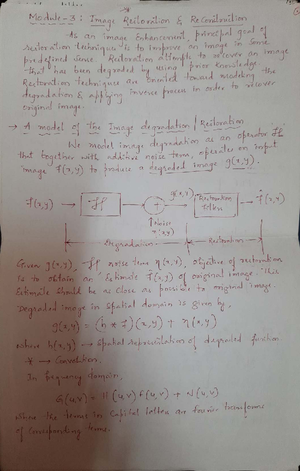 Module-3: Image Restoration & Reconstruction
As in image enhancement, principal goal of
restoration techniques is to improve an image in some
predefined sense. Restoration attempts to recover an image
that has been degraded by using prior knowledge.
Restoration techniques are oriented toward modeling the
degradation & applying inverse process in order to recover
original image.
→ A model of the Image degradation / Restoration
We model image degradation as an operator H
that together with additive noise term, operates on input
image f(x,y) to produce a degraded image g(x,y).
f(x,y) → H → + g(x,y) → Restoration filter → f̂(x,y)
↑ Noise
η(x,y)
Degradation Restoration
Given g(x,y), H noise term η(x,y), objective of restoration
is to obtain an Estimate f̂(x,y) of original image. This
Estimate should be as close as possible to original image.
Degraded image in spatial domain is given by,
g(x,y) = (h * f)(x,y) + η(x,y)
where h(x,y) → Spatial representation of degraded function
* → Convolution,
In frequency domain,
G(u,v) = H(u,v) F(u,v) + N(u,v)
where the terms in capital letters are fourier transforms
of corresponding terms.